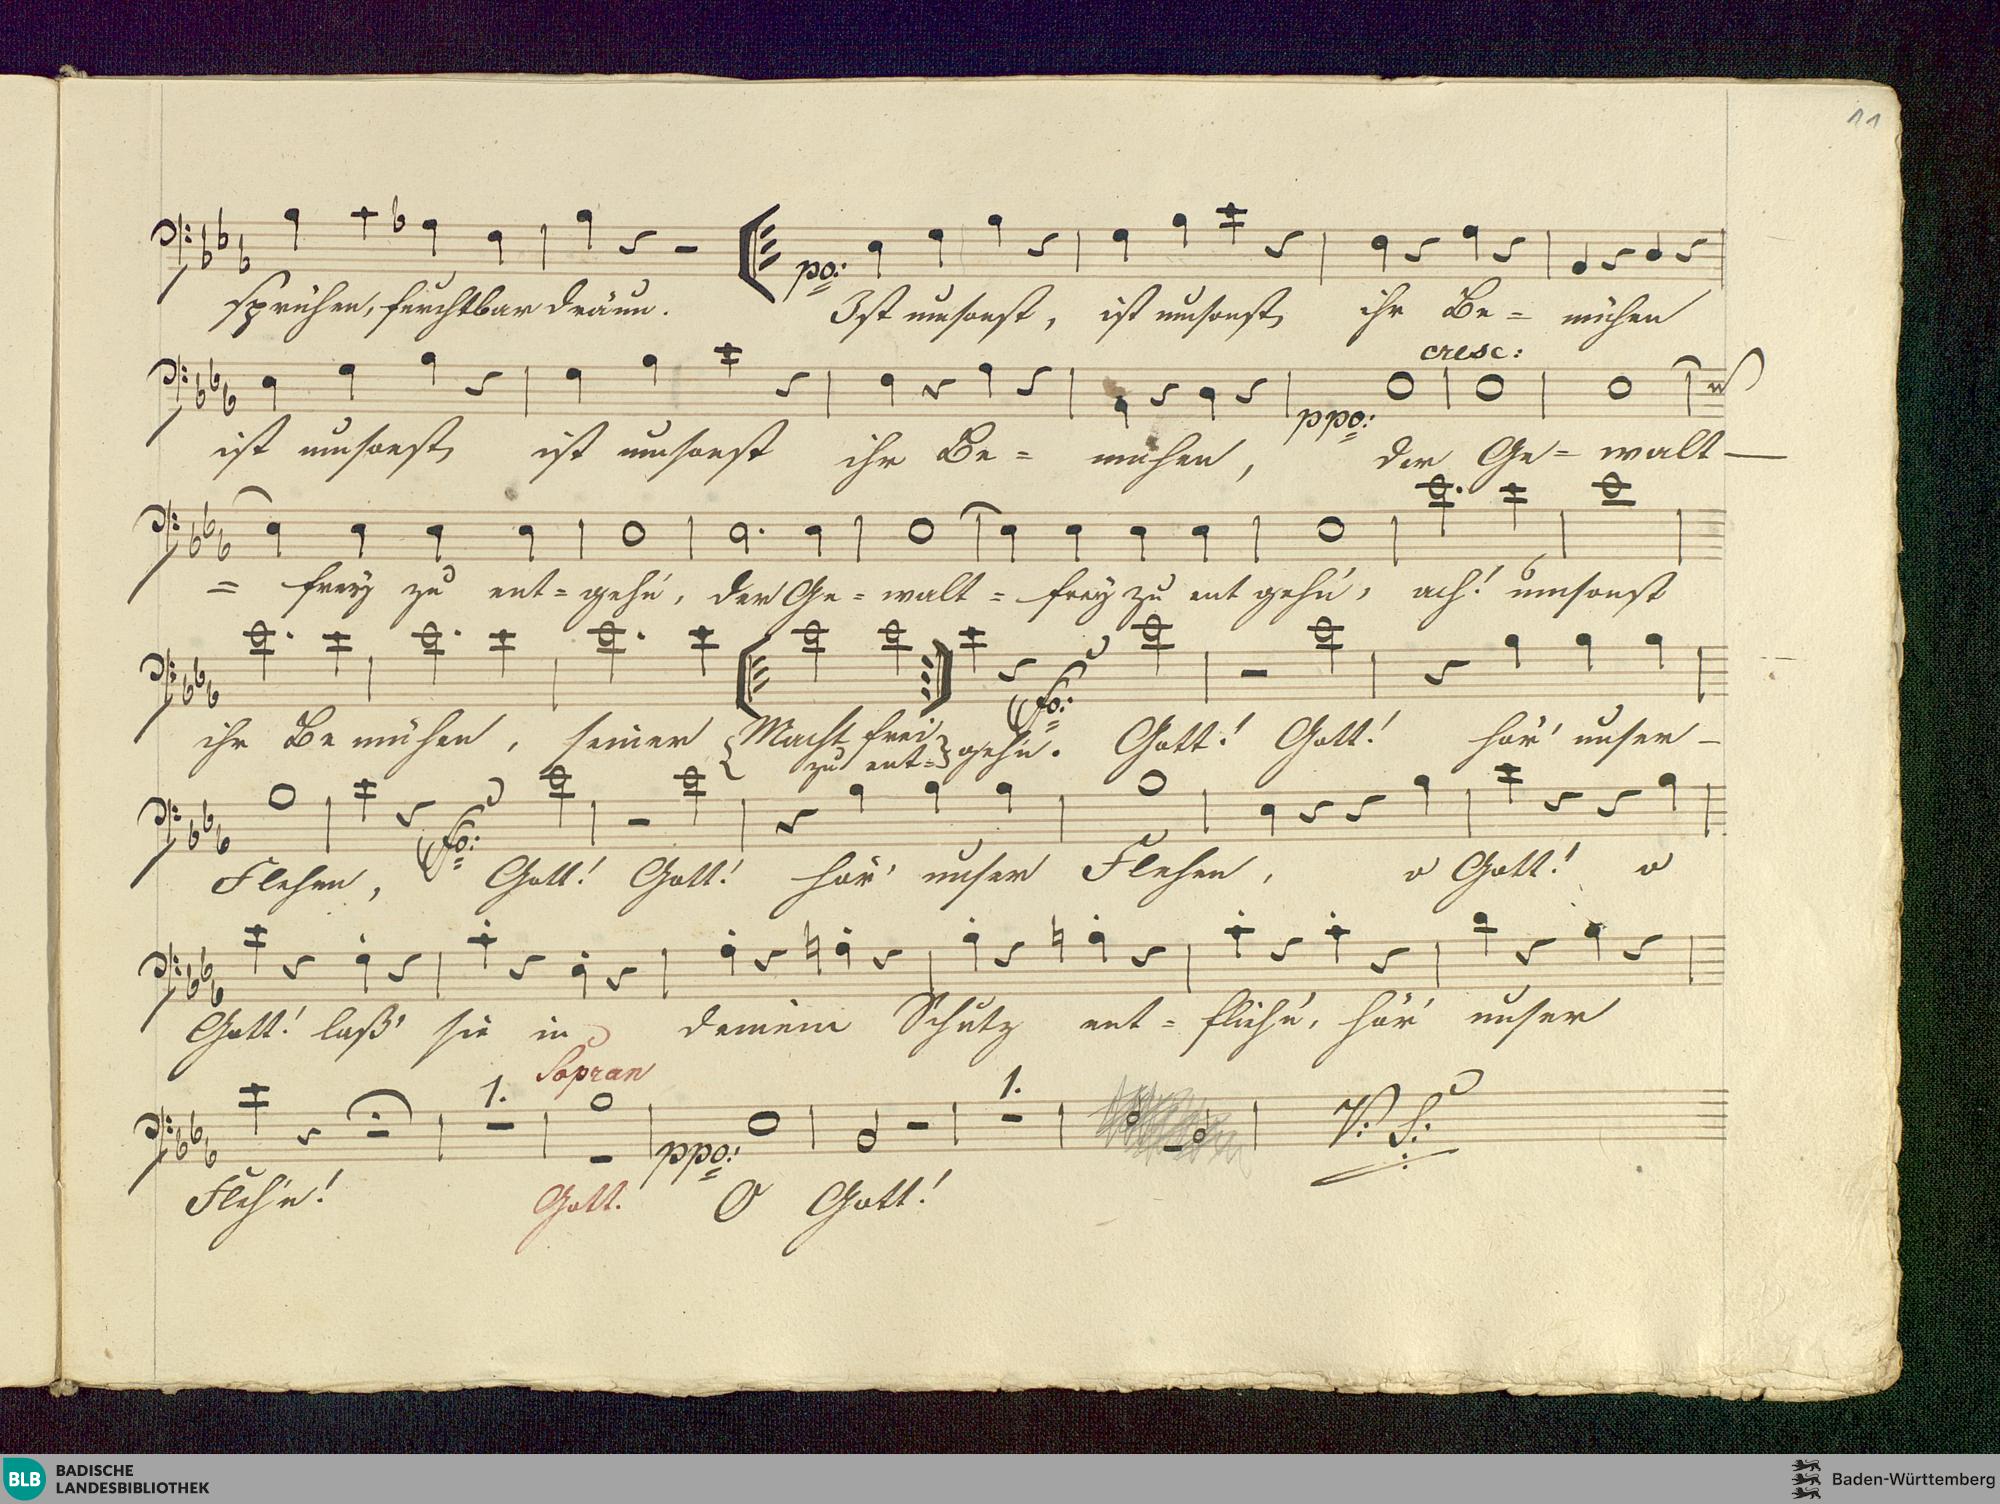 11
sprühen, furchtbar dräun.
po: Ist umsonst, ist umsonst, ihr Be = mühen
cresc:
ist umsonst, ist umsonst ihr Be = mühen, ppo: der Ge = walt —
= frey zu ent = gehn', der Ge = walt = frey zu ent gehn', ach! umsonst
ihr Be mühen, seiner {Macht frei zu ent=} gehn. fo: Gott! Gott! hör' unser –
Flehen, fo: Gott! Gott! hör' unser Flehen, o Gott! o
Gott! laß' sie in deinem Schutz ent = fliehn', hör' unser
1. Sopran 1.
ppo: V: S:
Fleh'n! Gott. O Gott!
BLB BADISCHE LANDESBIBLIOTHEK
Baden-Württemberg